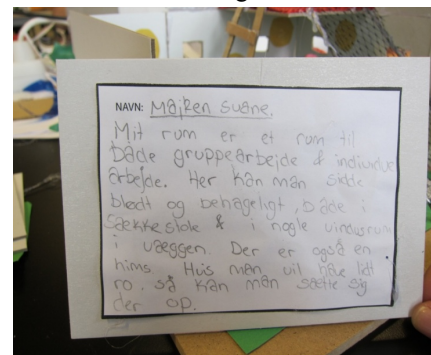 NAVN: Majken Svane.
Mit rum er et rum til
både gruppearbejde & individuel
arbejde. Her kan man sidde
blødt og behageligt, både i
sækkestole & i nogle vinduesrum
i væggen. Der er også en
hims. Hvis man vil have lidt
ro, så kan man sætte sig
der op.